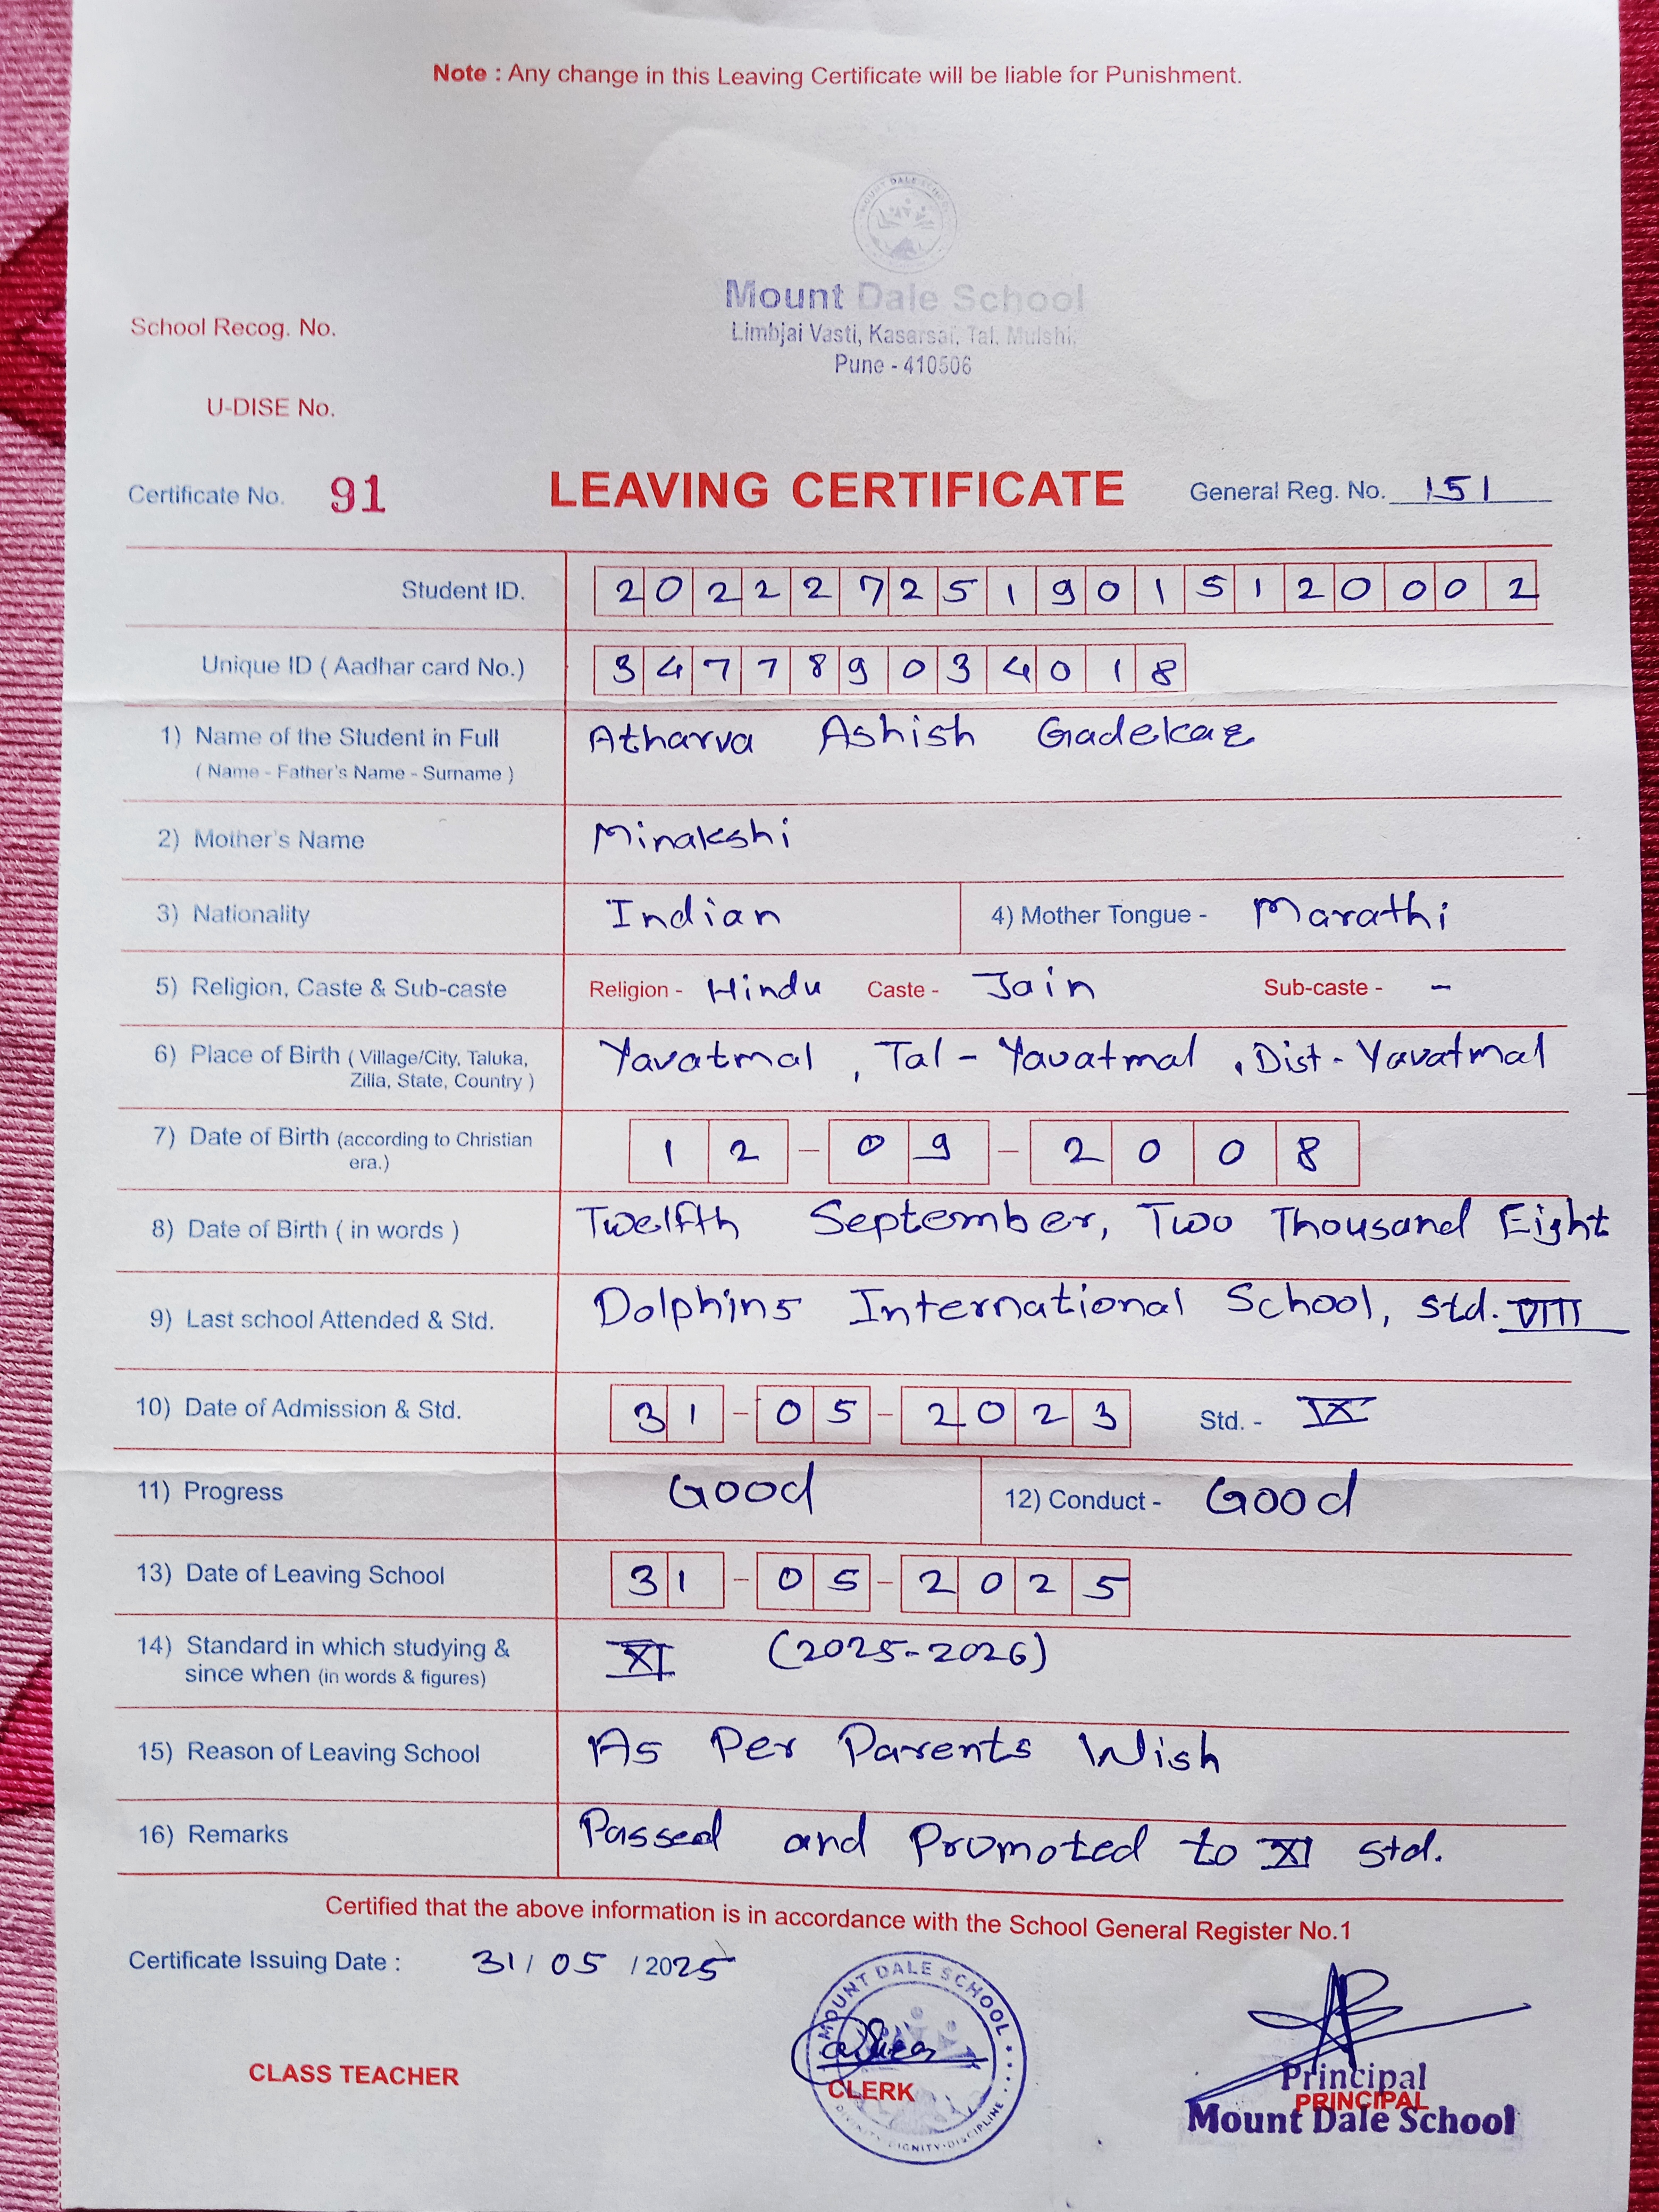 Note : Any change in this Leaving Certificate will be liable for Punishment.
MOUNT DALE SCHOOL
Mount Dale School
Limbjai Vasti, Kasarsai, Tal. Mulshi,
Pune - 410506
School Recog. No.
U-DISE No.
Certificate No. 91 LEAVING CERTIFICATE General Reg. No. 151
Student ID. 2022272519015120002
Unique ID ( Aadhar card No.) 347789034018
1) Name of the Student in Full Atharva Ashish Gadekar
( Name - Father's Name - Surname )
2) Mother's Name Minakshi
3) Nationality Indian 4) Mother Tongue - Marathi
5) Religion, Caste & Sub-caste Religion - Hindu Caste - Jain Sub-caste - -
6) Place of Birth ( Village/City, Taluka, Yavatmal, Tal - Yavatmal, Dist - Yavatmal
Zilla, State, Country )
7) Date of Birth (according to Christian 12 - 09 - 2008
era.)
8) Date of Birth ( in words ) Twelfth September, Two Thousand Eight
9) Last school Attended & Std. Dolphins International School, Std. VIII
10) Date of Admission & Std. 31 - 05 - 2023 Std. - IX
11) Progress Good 12) Conduct - Good
13) Date of Leaving School 31 - 05 - 2025
14) Standard in which studying & XI (2025-2026)
since when (in words & figures)
15) Reason of Leaving School As Per Parents Wish
16) Remarks Passed and Promoted to XI Std.
Certified that the above information is in accordance with the School General Register No.1
Certificate Issuing Date : 31/ 05 / 2025
MOUNT DALE SCHOOL
CLASS TEACHER
CLERK
DIGNITY·DISCIPLINE
Principal
PRINCIPAL
Mount Dale School